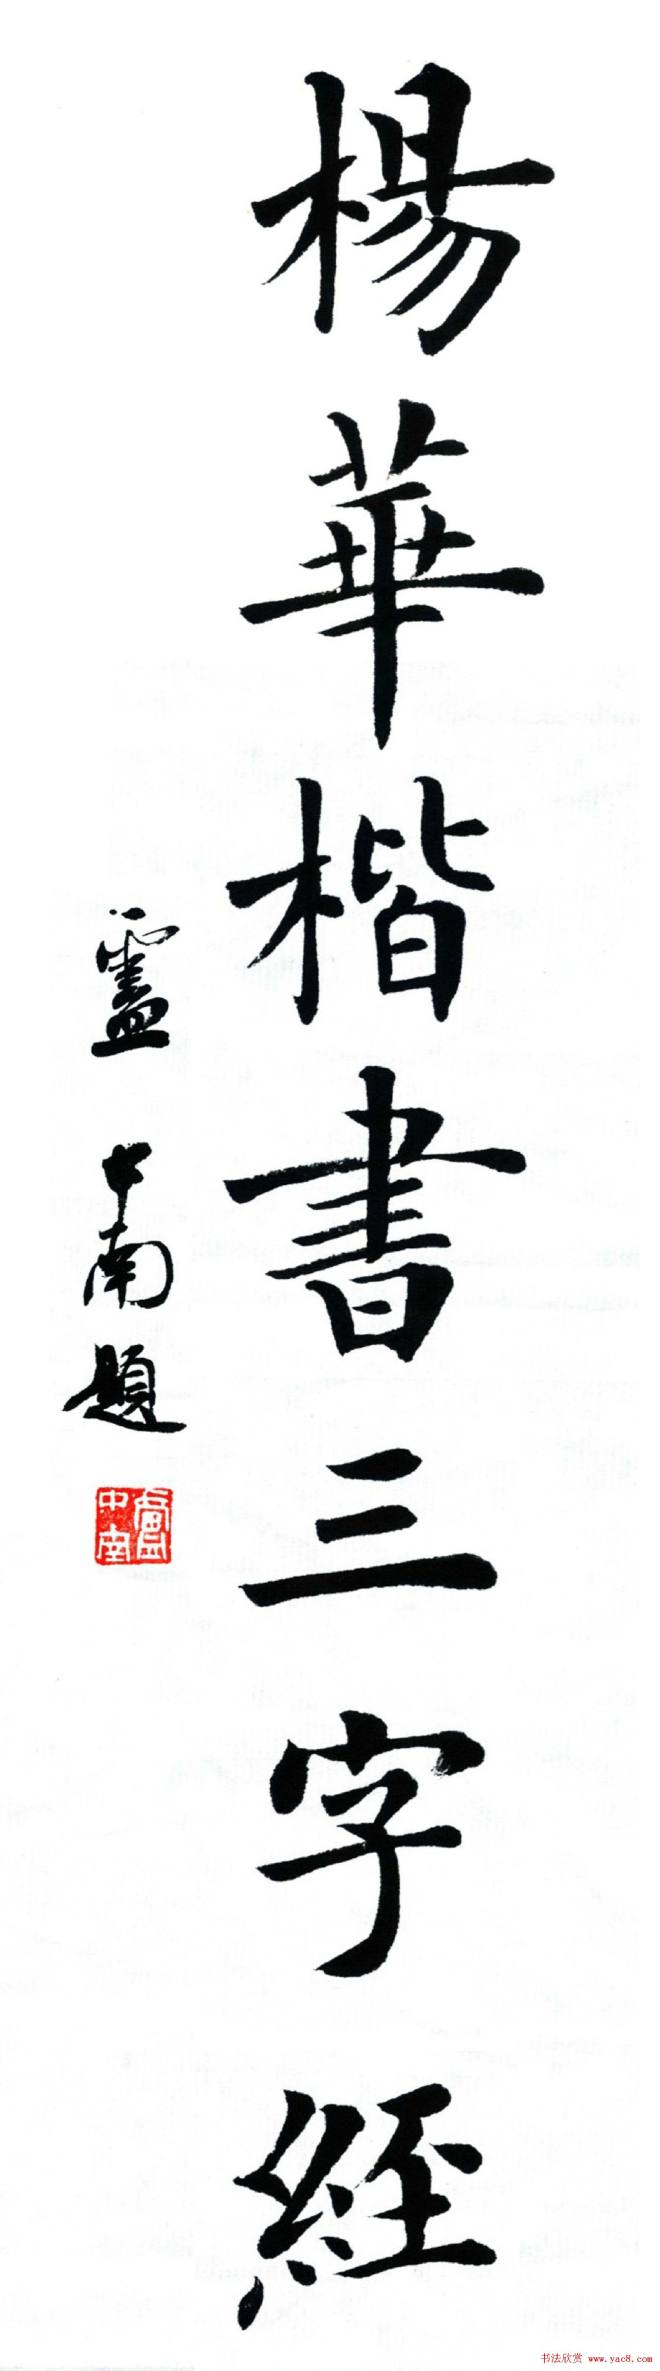 楊華楷書三字経
盧中南題
盧中南
书法欣赏 www.yac8.com